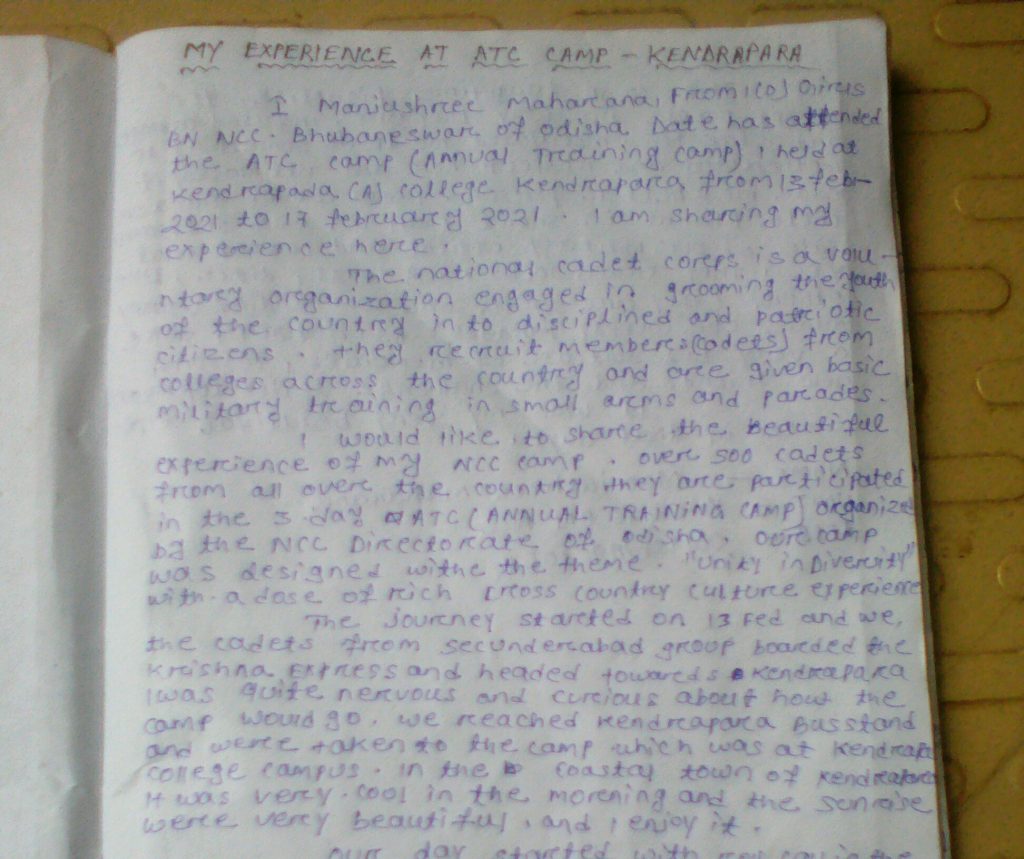 MY EXPERIENCE AT ATC CAMP - KENDRAPARA
I Maniushree Maharana, From 1(O) Girls
BN NCC. Bhubaneswar of odisha Date has attended
the ATC camp (Annual Training camp) , held at
Kendrapada (A) college Kendrapara from 13 feb-
2021 to 17 february 2021 . I am sharing my
experience here .
The national cadet corps is a volu-
ntary organization engaged in grooming the youth
of the country in to disciplined and patriotic
citizens . they recruit members(cadets) from
colleges across the country and are given basic
military training in small arms and parades.
I would like to share the beautiful
experience of my NCC camp . over 500 cadets
from all over the country they are participated
in the 5 day ATC (ANNUAL TRAINING CAMP) organized
by the NCC Directorate of odisha . our camp
was designed withe the theme . "unity in Divercity"
with a dose of rich cross country culture experience
The Journey started on 13 Fed and we,
the cadets from secunderabad group boarded the
Krishna Express and headed towards Kendrapara
I was quite nervous and curious about how the
camp would go. we reached Kendrapara Busstand
and were taken to the camp which was at Kendrapa
college campus . in the coastal town of Kendrapara
It was very cool in the morening and the sunraise
were very beautiful , and I enjoy it .
our day started with the